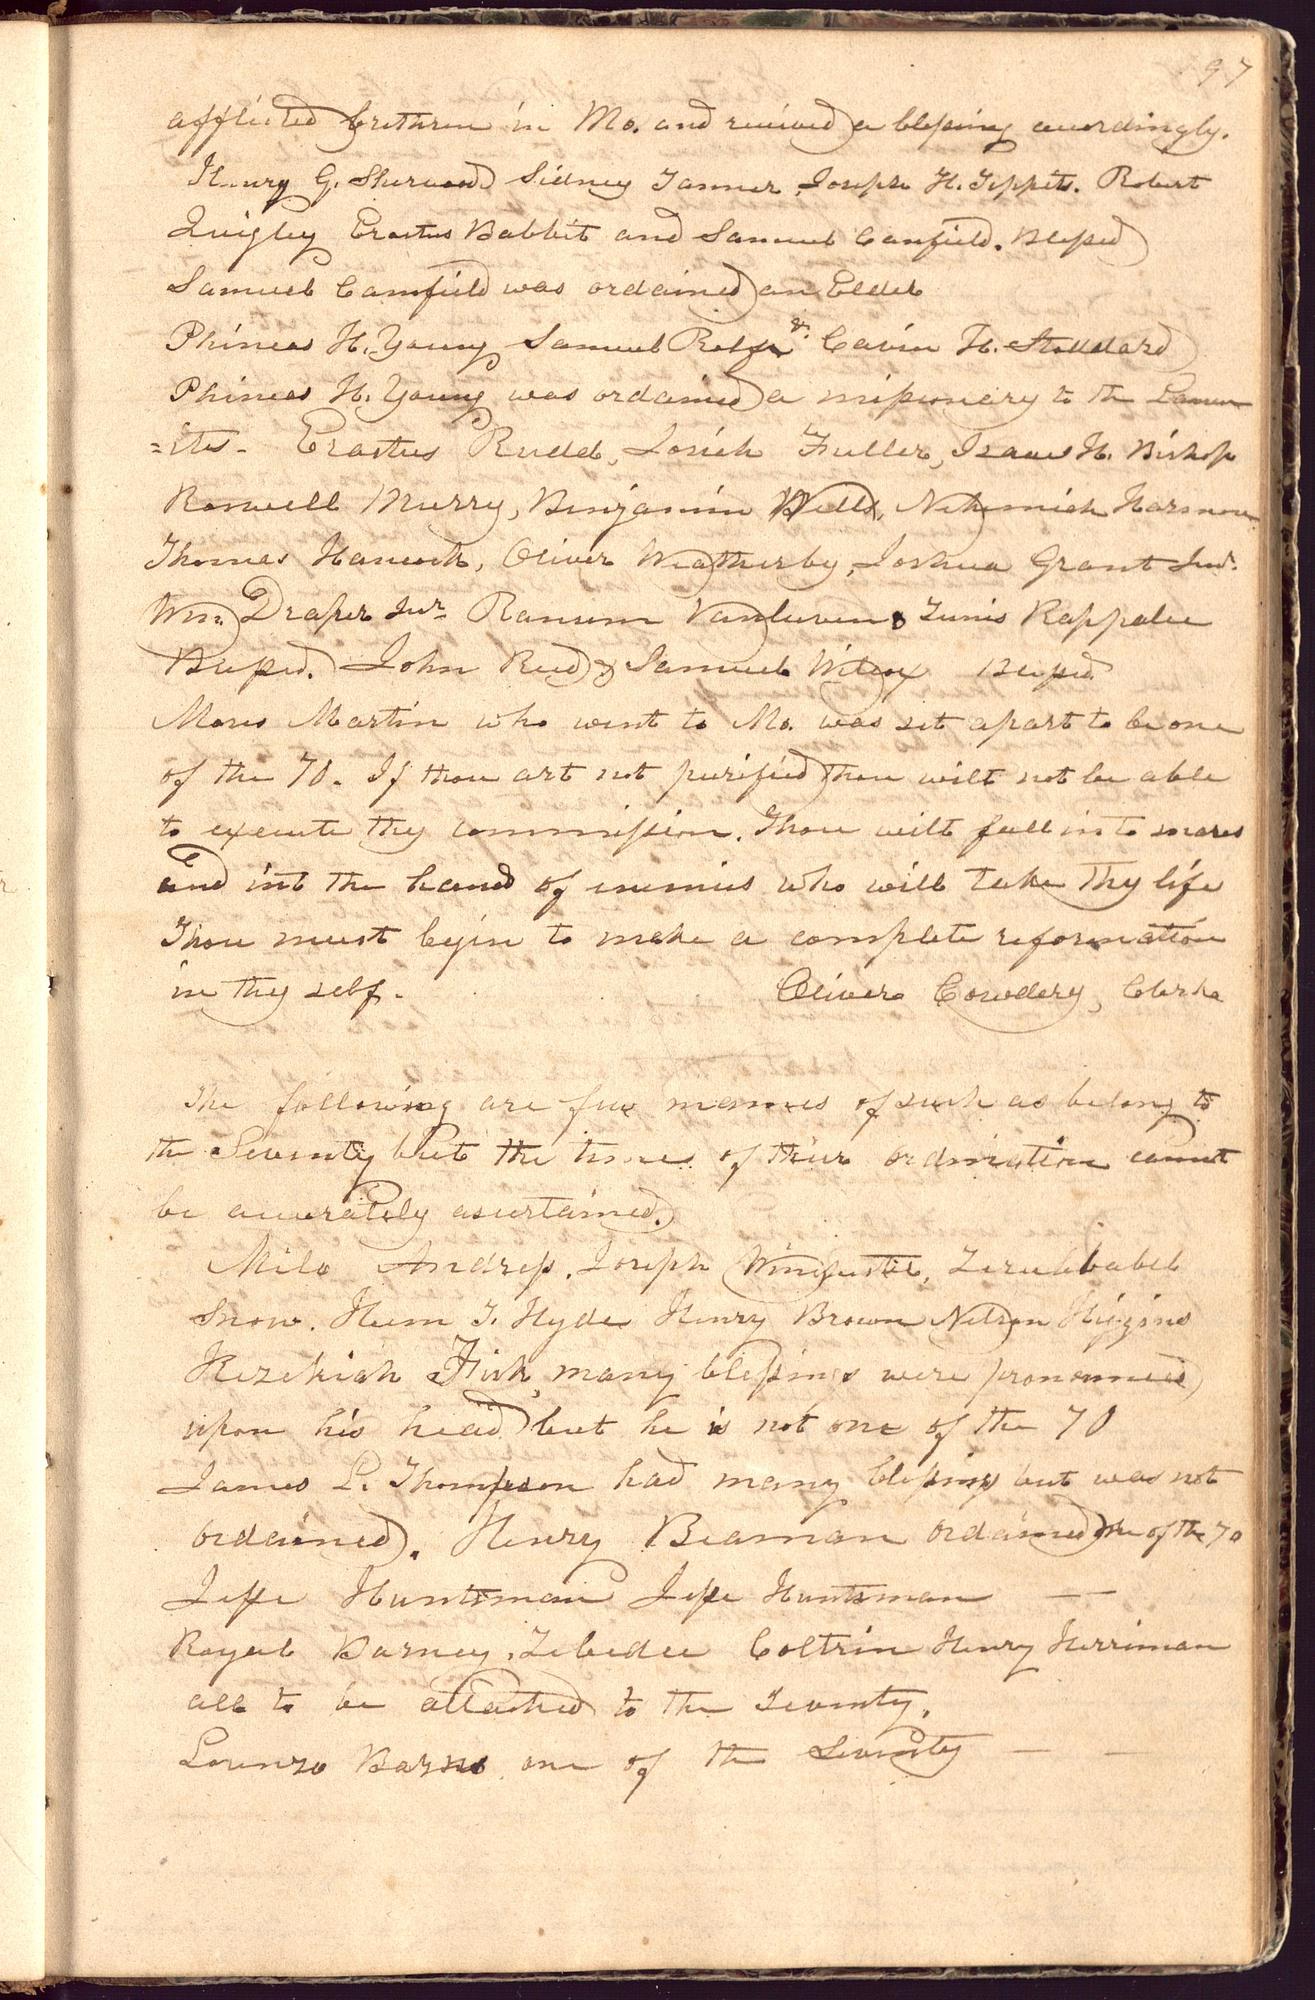 197
afflicted brethren in Mo. and received a blessing accordingly.
Henry G. Sherwood Sidney Tanner, Joseph H. Tippits. Robert
Quigley Erastus Babbit and Samuel Canfield. Blessed
Samuel Camfield was ordained an Elder
Phineas H. Young Samuel Rolfe & Calvin H. Stoddard
Phineas H. Young was ordained a missionary to the Laman
=ites. Erastus Rudd, Josiah Fuller, Isaac H. Bishop
Roswell Murry, Benjamin Wells, Nehemiah Harmon
Thomas Hancock, Oliver Weatherby, Joshua Grant Jur.
Wm. Draper Jur. Ransom Vanleuven & Tunis Rappalee
Blessed. John Reed & Samuel Wilcox Blessed
Moses Martin who went to Mo. was set apart to be one
of the 70. If thou art not purified thou wilt not be able
to execute thy commission. Thou wilt fall into snares
and into the hand of enemies who will take thy life
Thou must begin to make a complete reformation
in thy self. Oliver Cowdery, Clerk
The following are few names of such as belong to
the Seventy but the times of their ordination cannot
be accurately asurtained.
Milo Andress, Joseph Winchester, Zerubbabel
Snow. Heem T. Hyde Henry Brown Nelson Higgins
Hezekiah Fisk, many blessings were pronounced
upon his head but he is not one of the 70
James L. Thompson had many blessings but was not
ordained. Henry Beaman ordained one of the 70
Jesse Huntsman Jesse Huntsman —
Royal Barney, Zebedee Coltrin Henry Herriman
all to be attached to the Seventy.
Lorenzo Barnes one of the Seventy — —